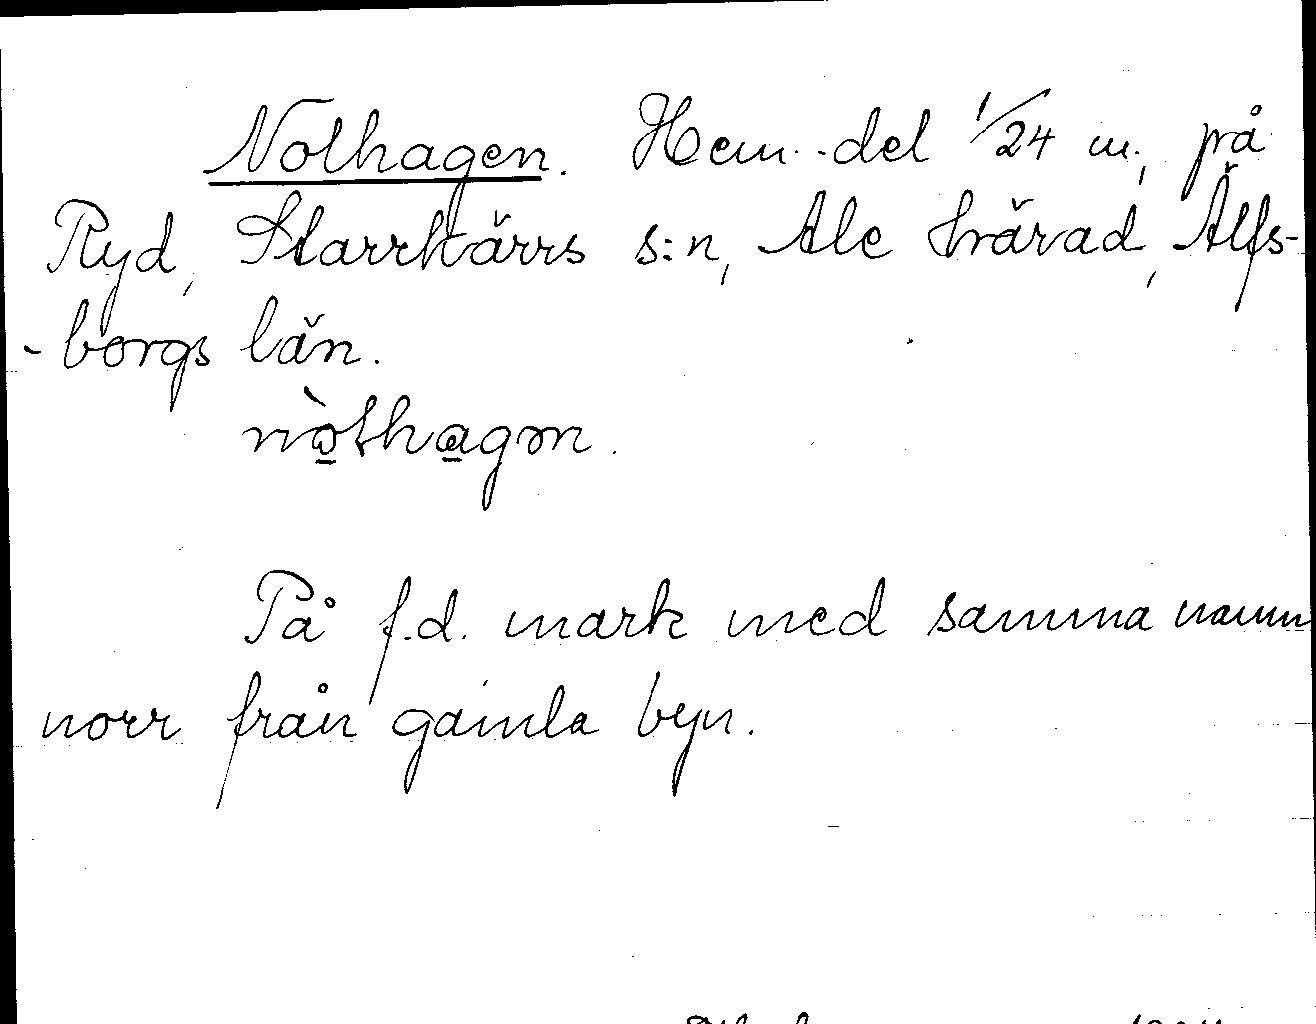 Nolhagen. Hem.-del 1/24 m., på
Ryd, Starrkärrs s:n, Ale härad, Älfs-
-borgs län.
På f.d. mark med samma namn
norr från gamla byn.